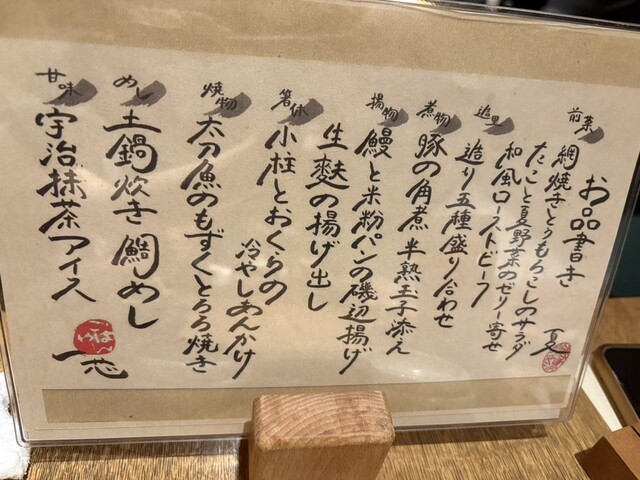 お品書き 夏
前菜
網焼きとうもろこしのサラダ
たこと夏野菜のゼリー寄せ
和風ローストビーフ
造里
造り五種盛り合わせ
煮物
豚の角煮 半熟玉子添え
揚物
鰻と米粉パンの磯辺揚げ
生麩の揚げ出し
箸休
小柱とおくらの
冷やしあんかけ
焼物
太刀魚のもずくとろろ焼き
めし
土鍋炊き鯛めし
甘味
宇治抹茶アイス
ごはんや
一芯